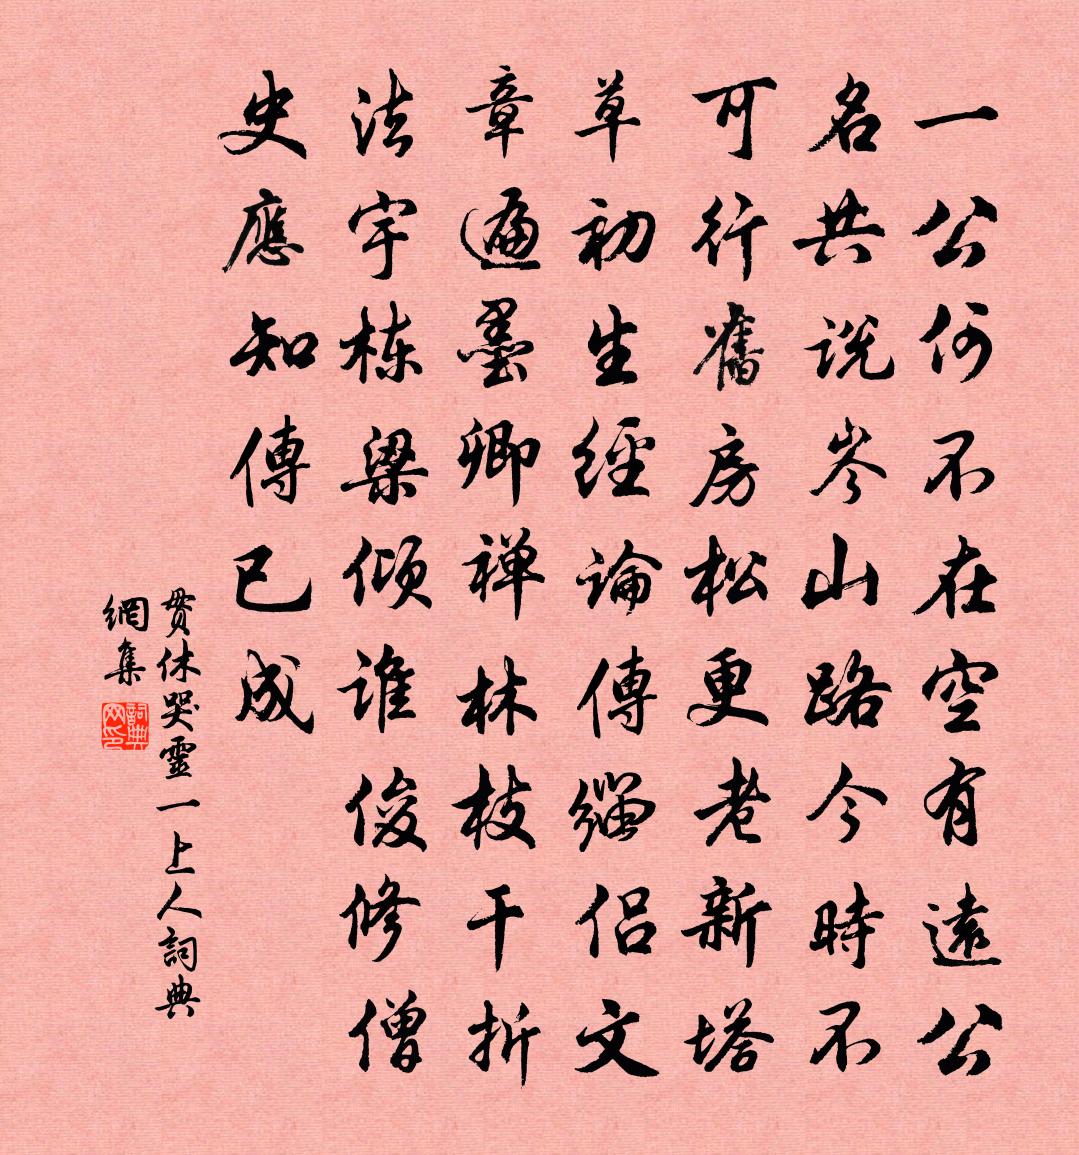 一公何不在空有遠公
名共説岑山路今時不
可行舊房松更老新塔
草初生經論傳緇侶文
章遍墨卿禅林枝干折
法宇棟梁傾誰俊修僧
史應知傳已成
貫休哭靈一上人詞典
網集
詞典
网印